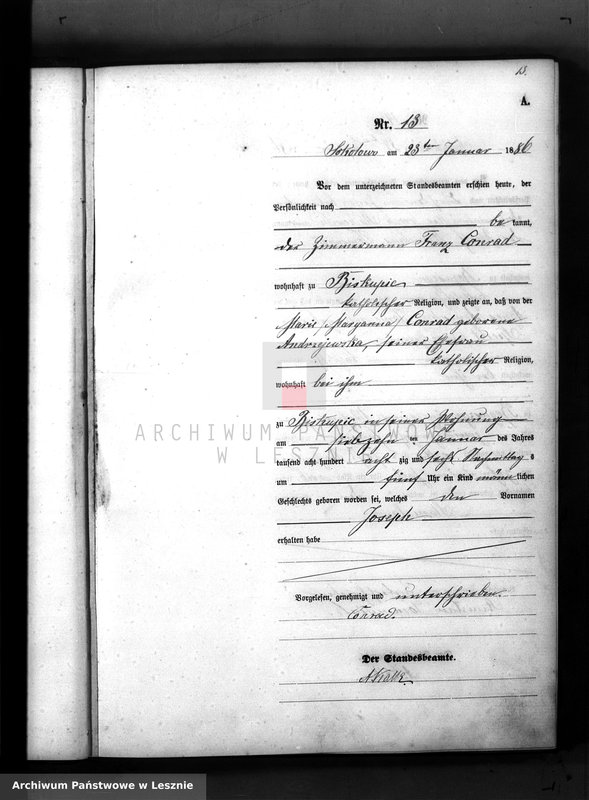 13.
A.
Nr. 13
Sokolowo am 23ten Januar 1886
Vor dem unterzeichneten Standesbeamten erschien heute, der
Persönlichkeit nach
bekannt,
der Zimmermann Franz Conrad
wohnhaft zu Biskupic
katholischer Religion, und zeigte an, daß von der
Marie /Maryanna/ Conrad geborene
Andrzejewska, seiner Ehefrau
katholischer Religion,
wohnhaft bei ihm
zu Biskupic in seiner Wohnung
am siebzehn ten Januar des Jahres
tausend acht hundert acht zig und sechs Nachmittag s
um fünf Uhr ein Kind männlichen
Geschlechts geboren worden sei, welches den Vornamen
Joseph
erhalten habe
Vorgelesen, genehmigt und unterschrieben.
Conrad.
Der Standesbeamte.
ARCHIWUM PAŃSTWOWE
W LESZNIE
Archiwum Państwowe w Lesznie